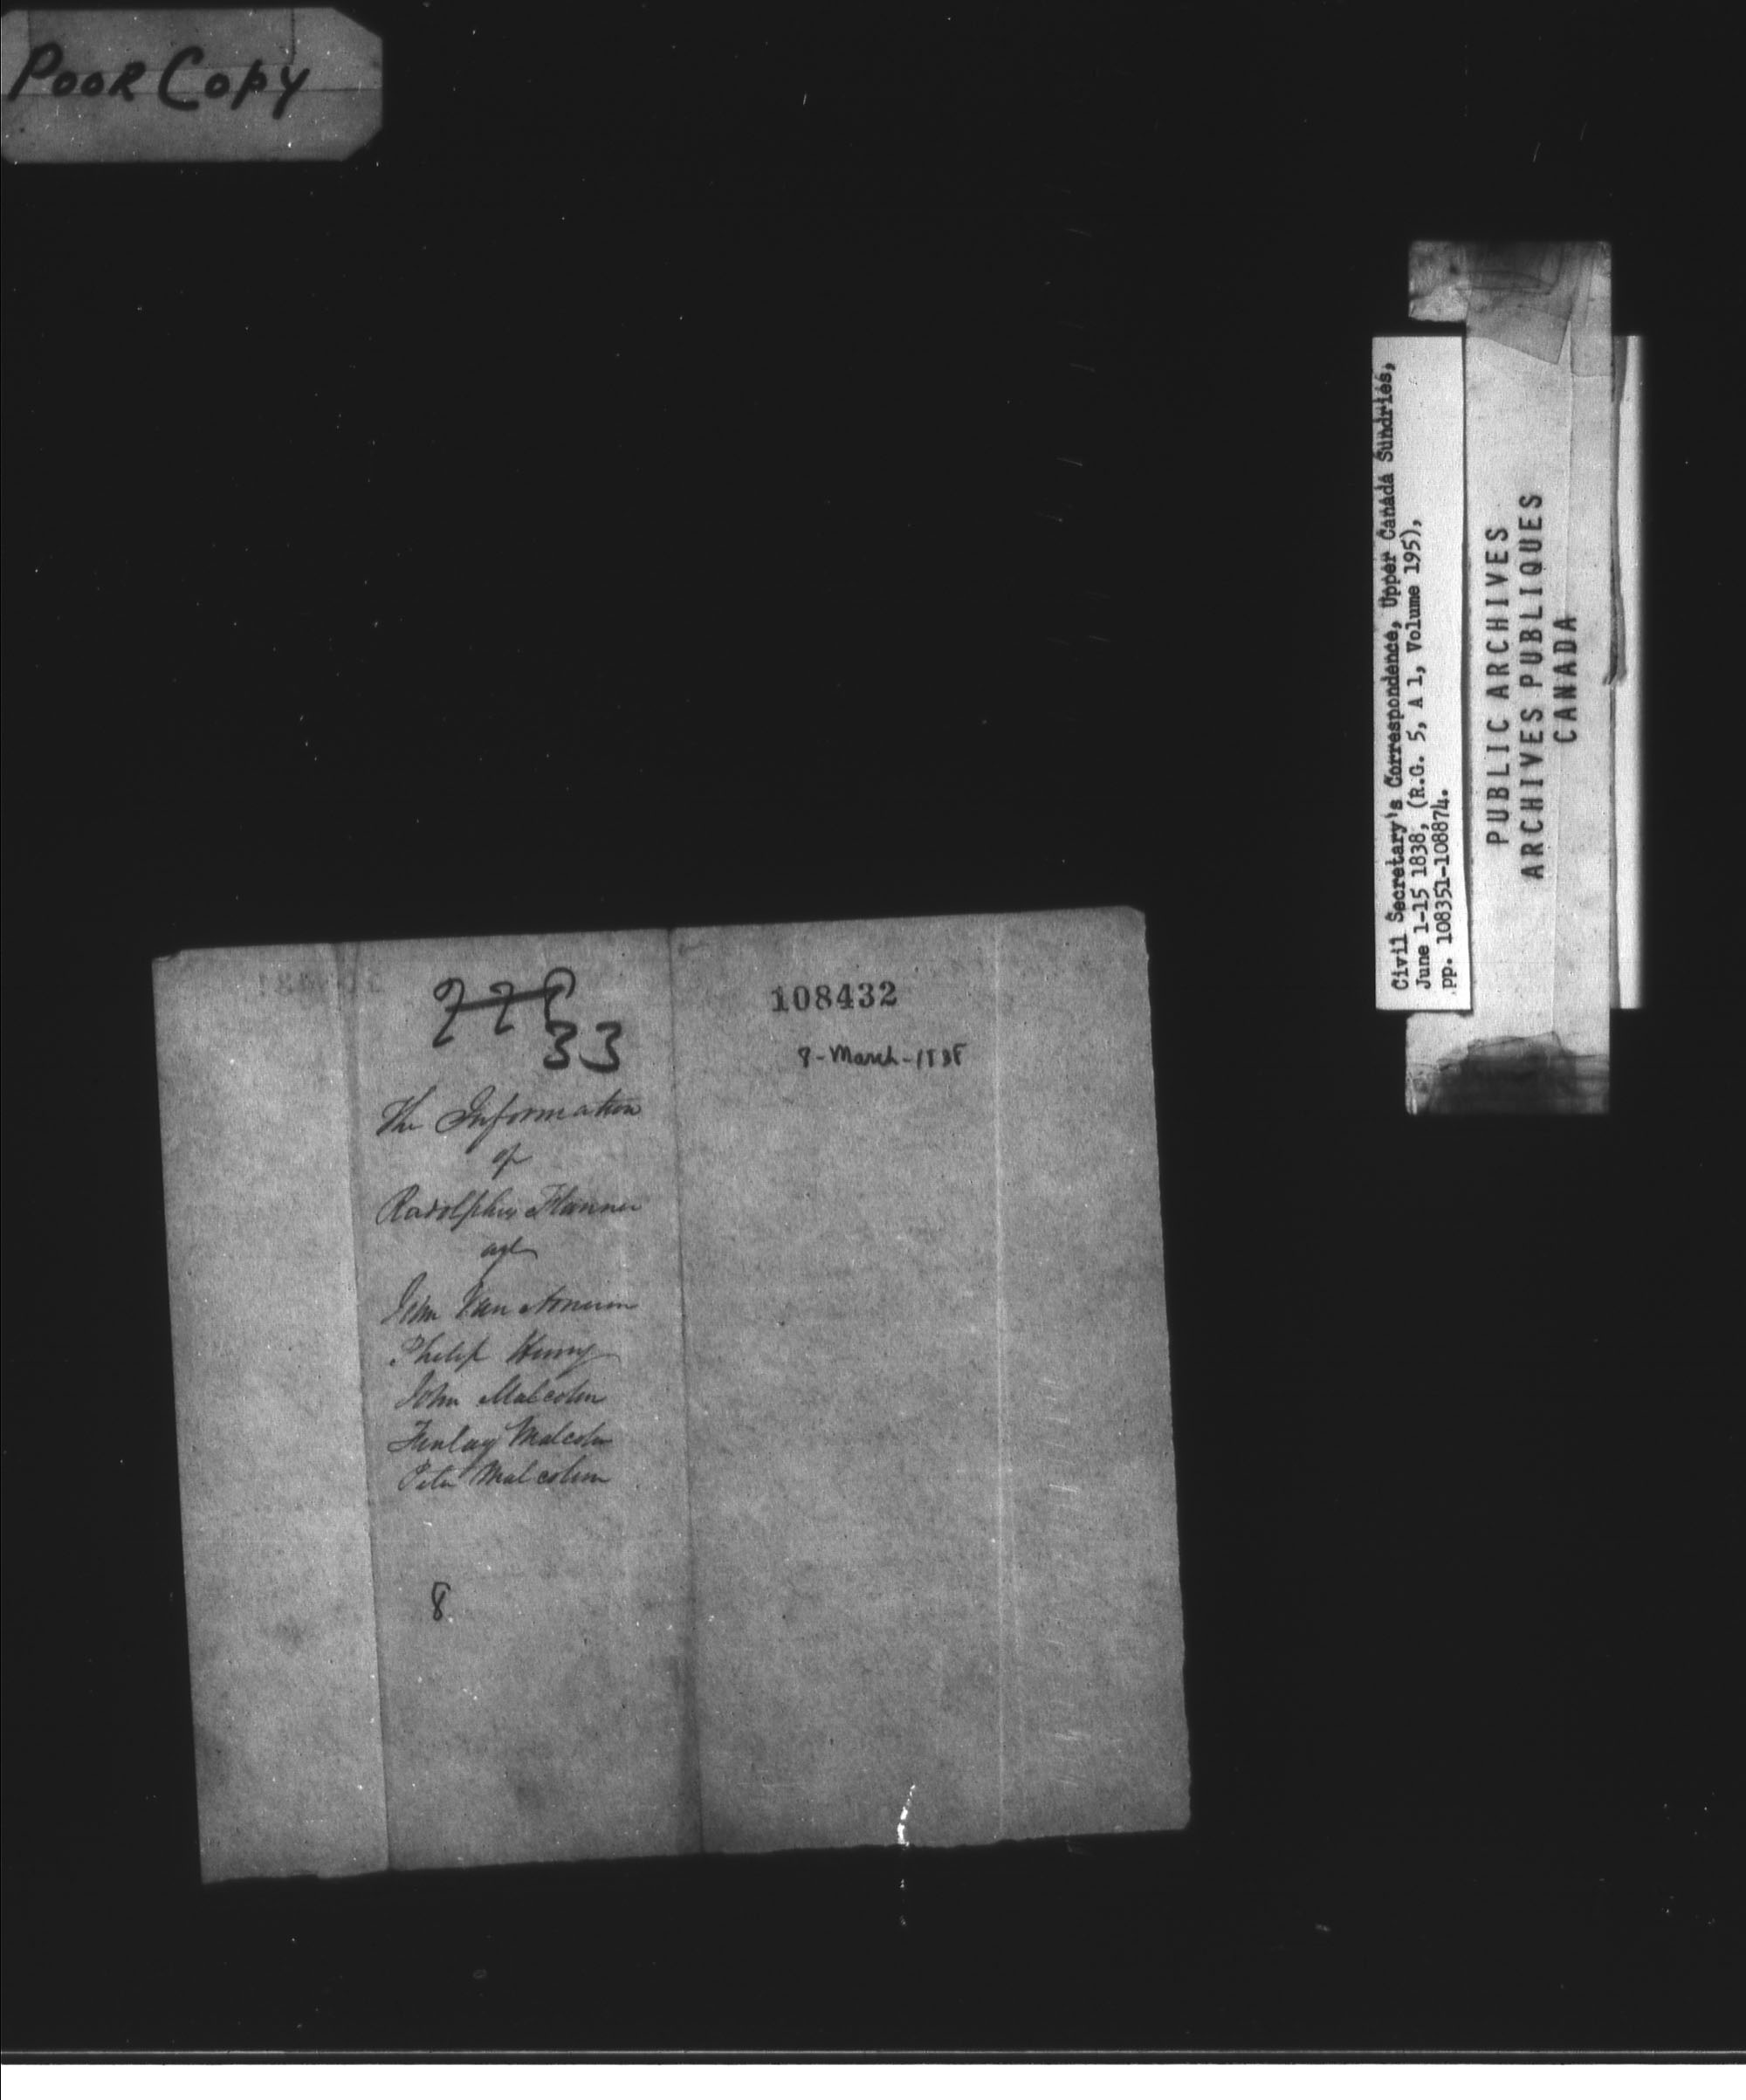 Poor Copy
Civil Secretary's Correspondence, Upper Canada Sundries,
June 1-15 1838, (R.G. 5, A 1, Volume 195),
pp. 108351-108874.
PUBLIC ARCHIVES
ARCHIVES PUBLIQUES
CANADA
33
108432
8-March-1838
The Information
of
agt
John Van Norman
Philip Henry
John Malcolm
Finlay Malcolm
Peter Malcolm
8